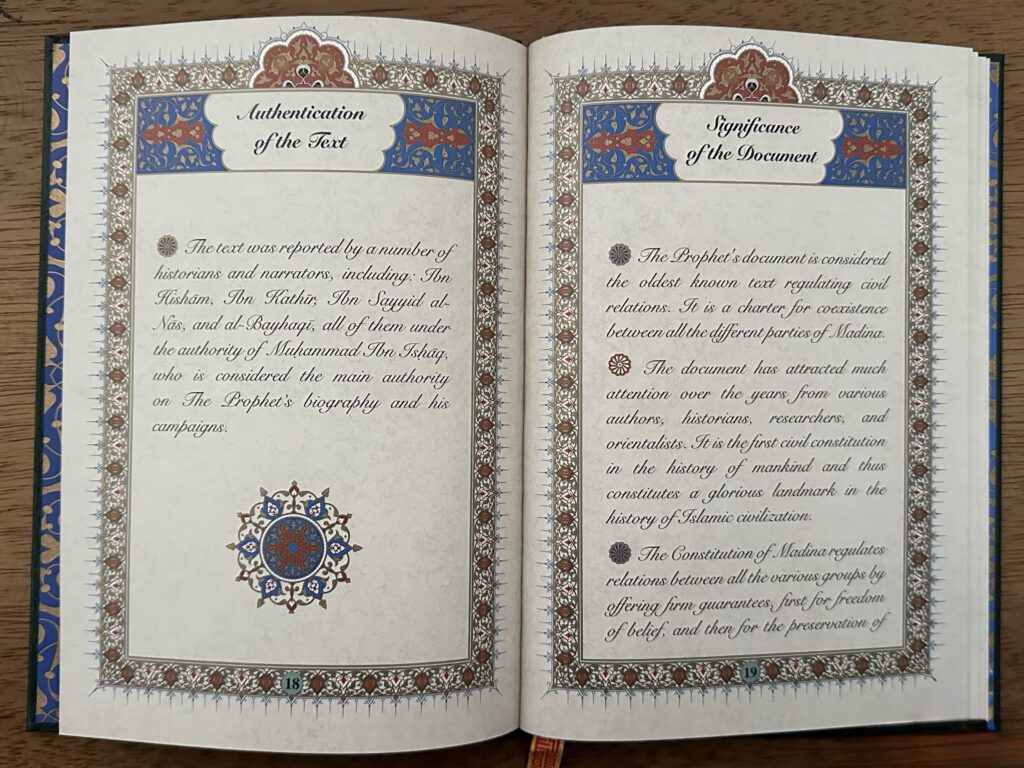 Authentication
of the Text
The text was reported by a number of
historians and narrators, including: Ibn
Hishām, Ibn Kathīr, Ibn Sayyid al-
Nās, and al-Bayhaqī, all of them under
the authority of Muhammad Ibn Ishāq,
who is considered the main authority
on The Prophet's biography and his
campaigns.
18
Significance
of the Document
The Prophet's document is considered
the oldest known text regulating civil
relations. It is a charter for coexistence
between all the different parties of Madina.
The document has attracted much
attention over the years from various
authors, historians, researchers, and
orientalists. It is the first civil constitution
in the history of mankind and thus
constitutes a glorious landmark in the
history of Islamic civilization.
The Constitution of Madina regulates
relations between all the various groups by
offering firm guarantees, first for freedom
of belief, and then for the preservation of
19